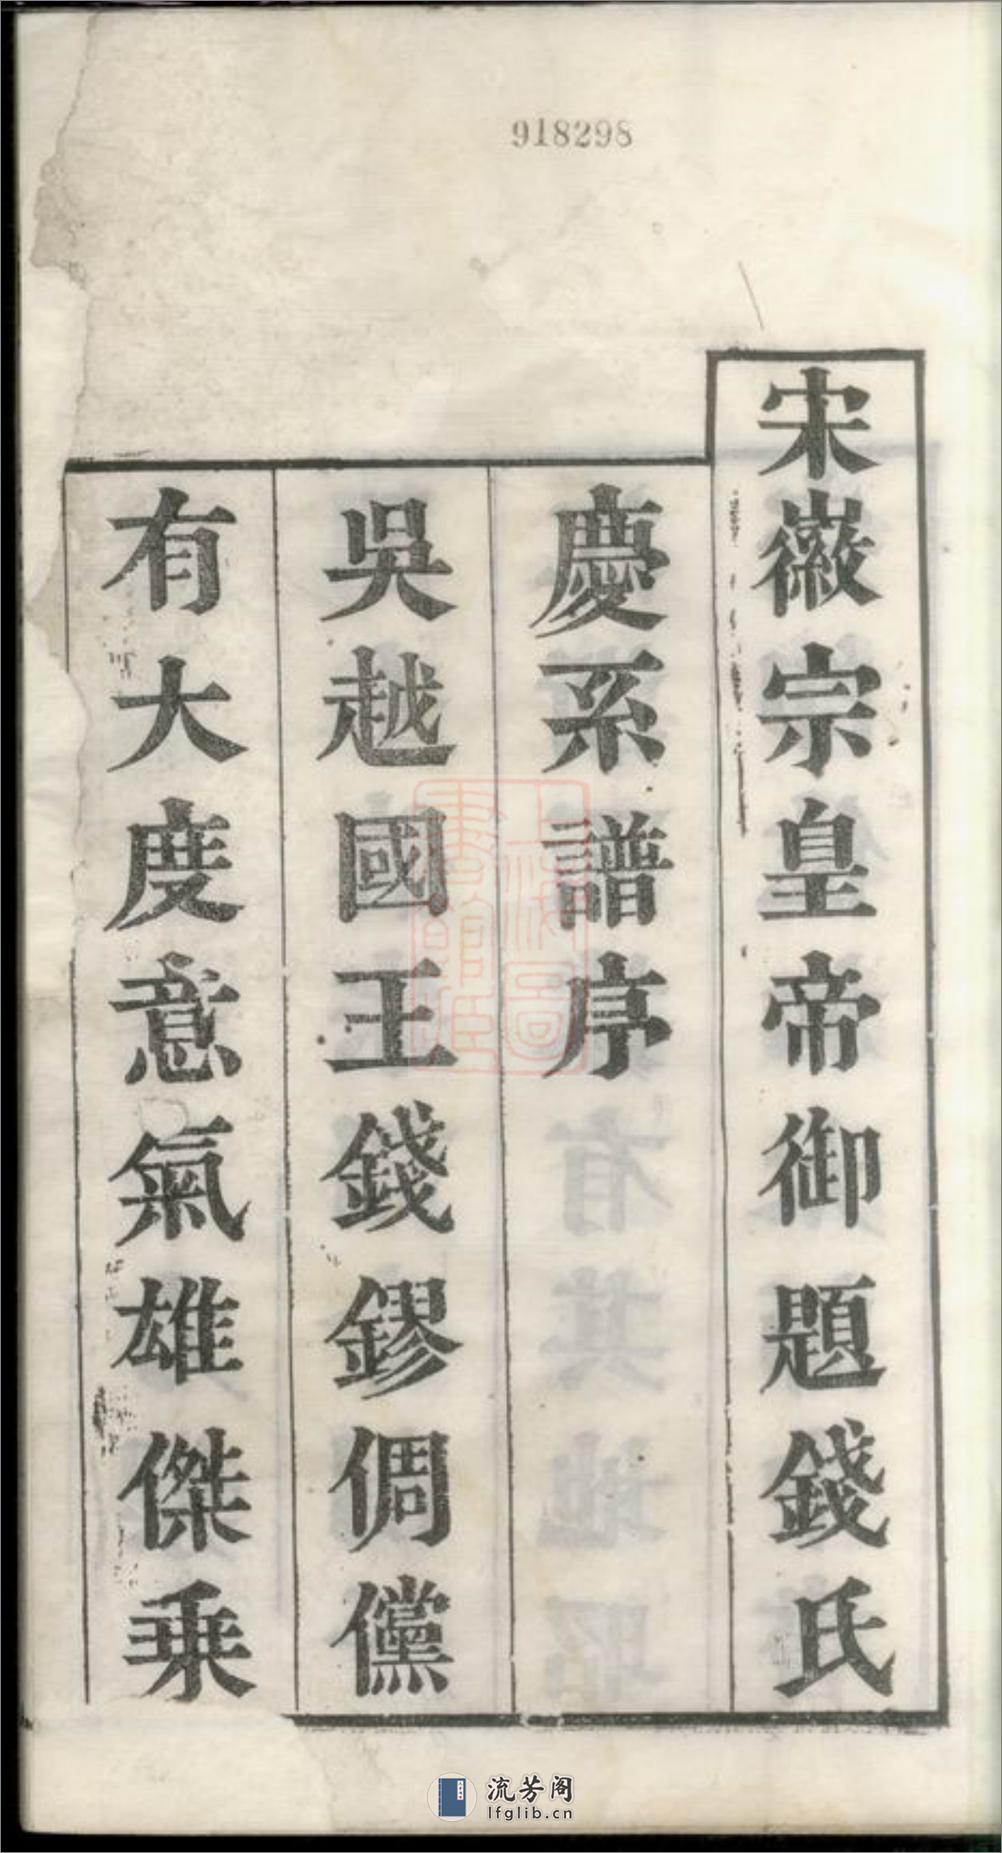 918298
宋徽宗皇帝御題錢氏
慶系譜序
吳越國王錢鏐倜儻
有大度意氣雄傑乗
流芳阁
lfglib.cn